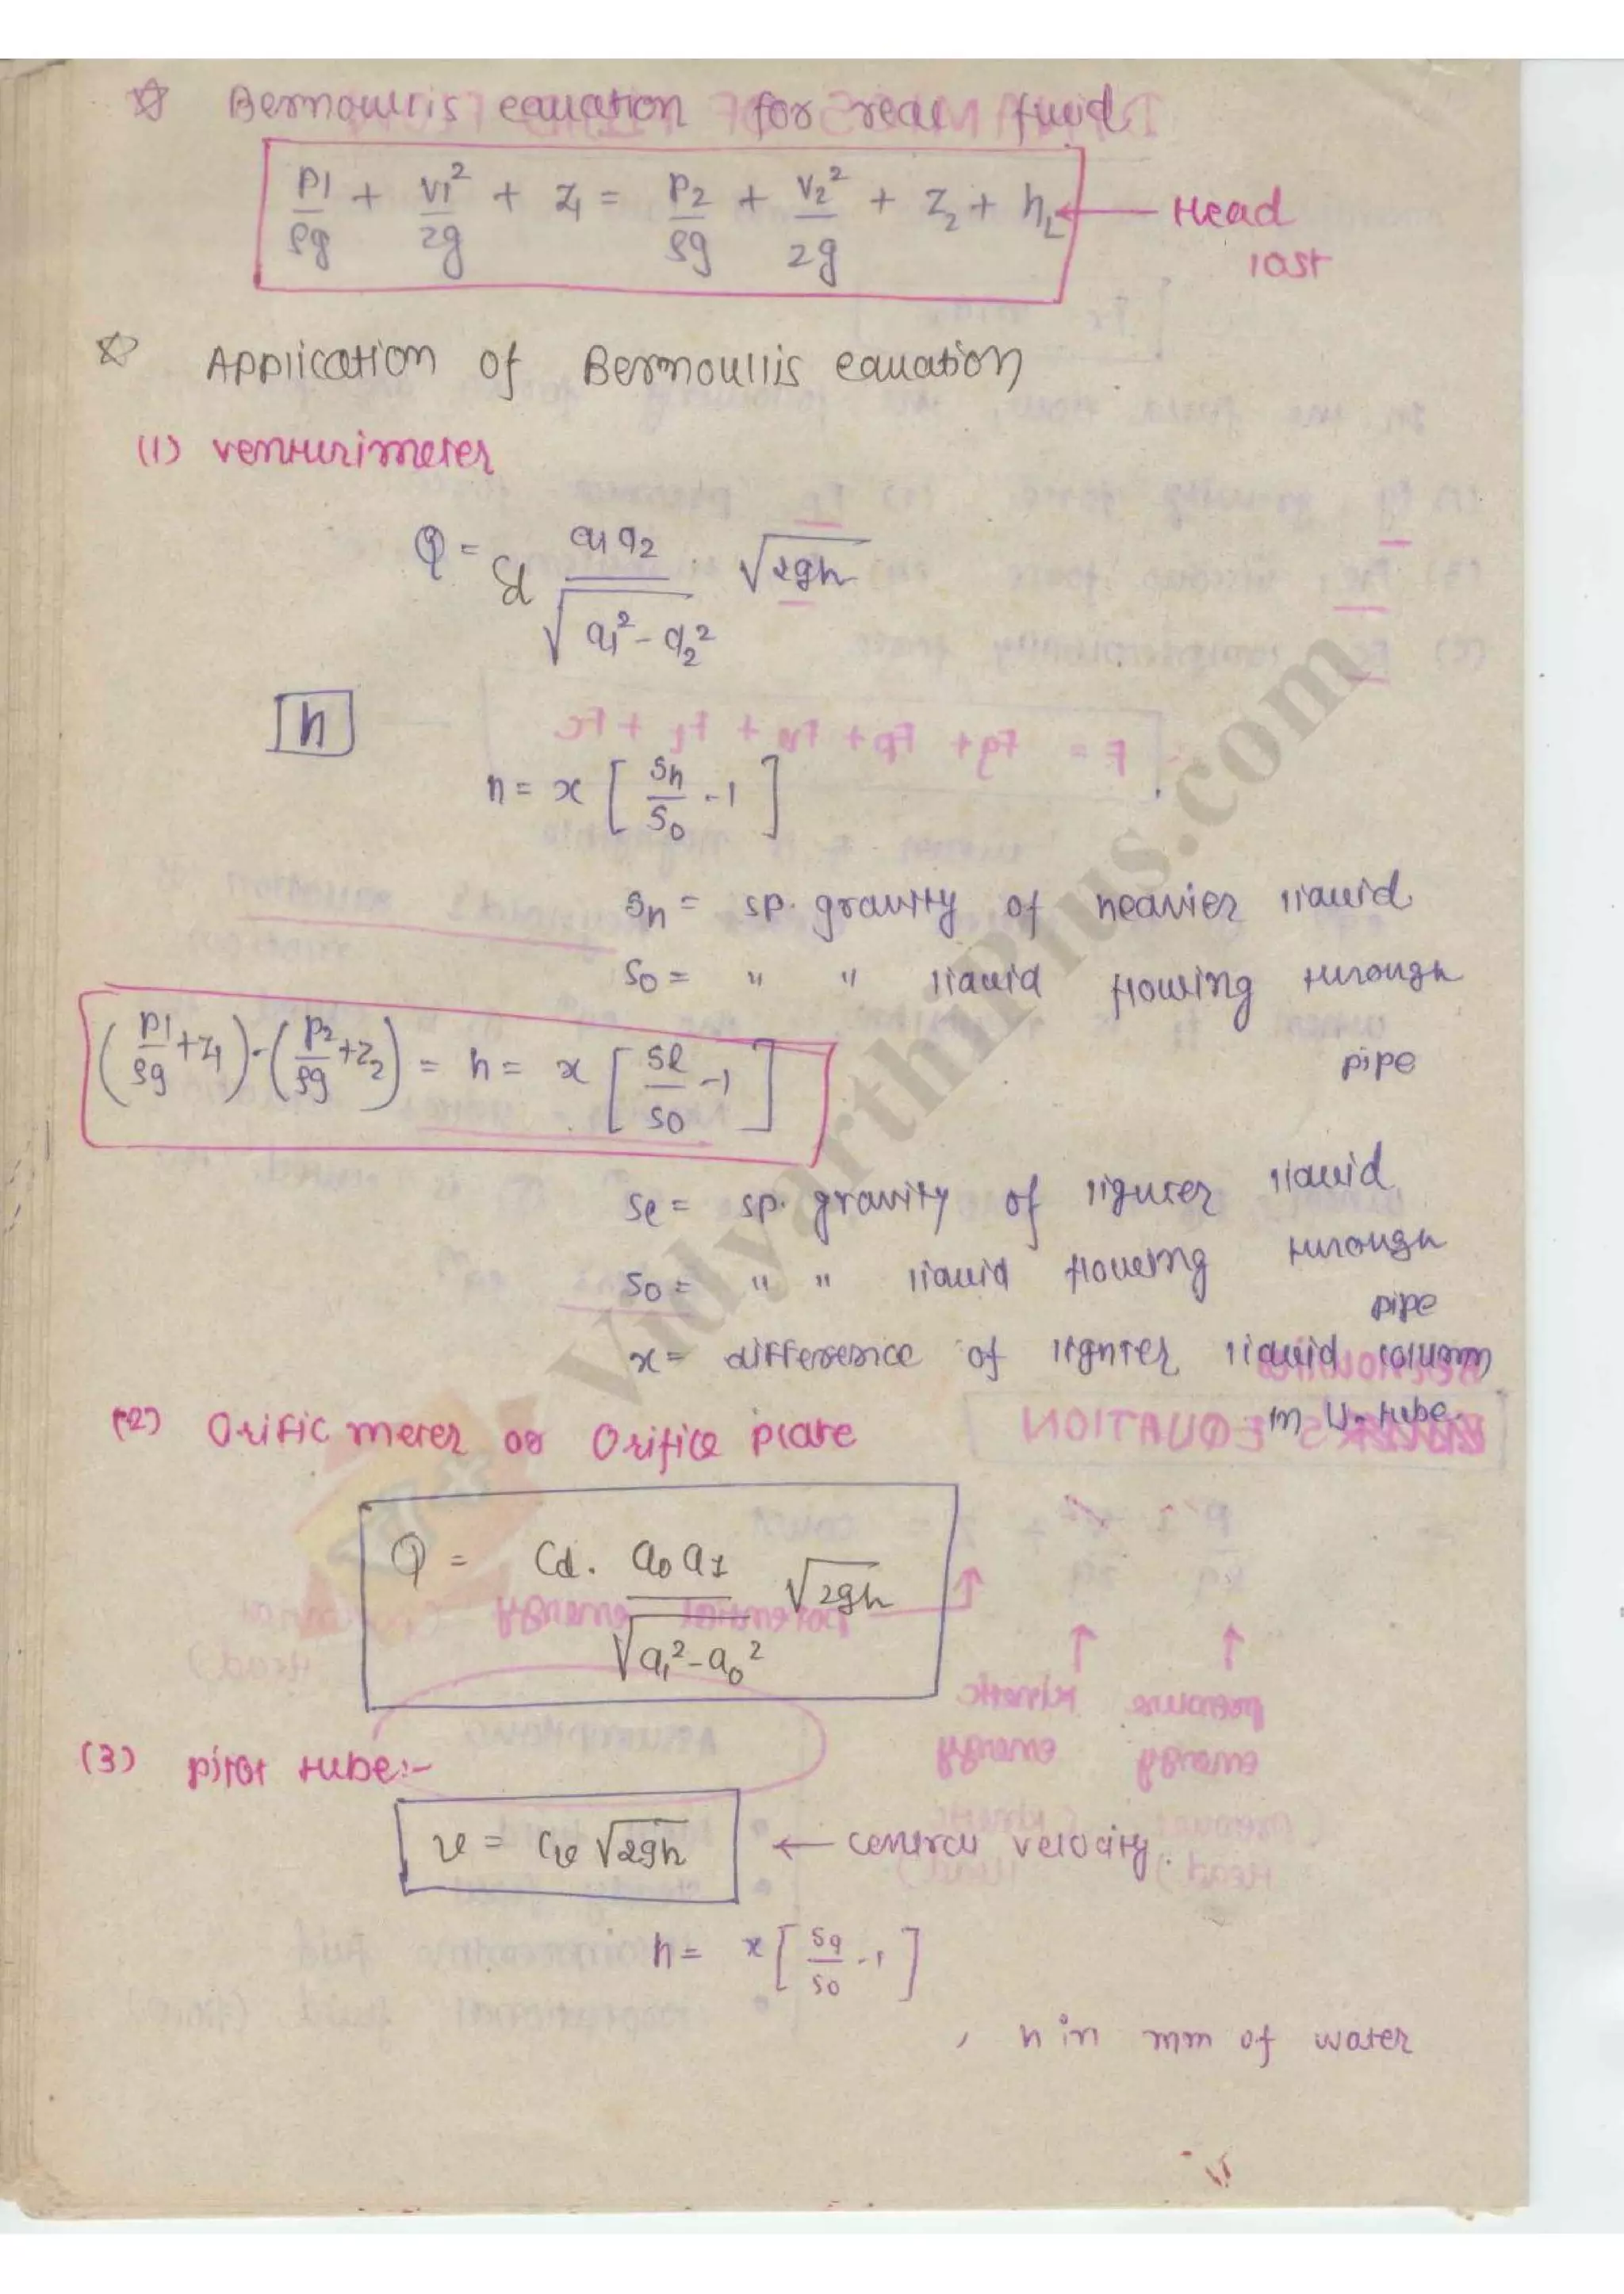 ☆ Bernoulli's equation for real fluid
P1/ρg + V1²/2g + Z1 = P2/ρg + V2²/2g + Z2 + hL ← Head lost
☆ Application of Bernoullis equation
(1) venturimeter
Q = Cd a1a2/√(a1² - a2²) √2gh
h
h = x [Sh/So - 1]
Sh = sp. gravity of heavier liquid
So = " " liquid flowing through pipe
(P1/ρg + Z1) - (P2/ρg + Z2) = h = x [Sl/So - 1]
Sl = sp. gravity of lighter liquid
So = " " liquid flowing through pipe
x = difference of lighter liquid column
in U-tube.
(2) Orific meter or Orifice plate
Q = Cd. a0 a1/√(a1² - a0²) √2gh
(3) pitot tube:-
v = Cv √2gh ← central velocity.
h = x [Sg/So - 1]
, h in mm of water
VidyarthiPlus.com